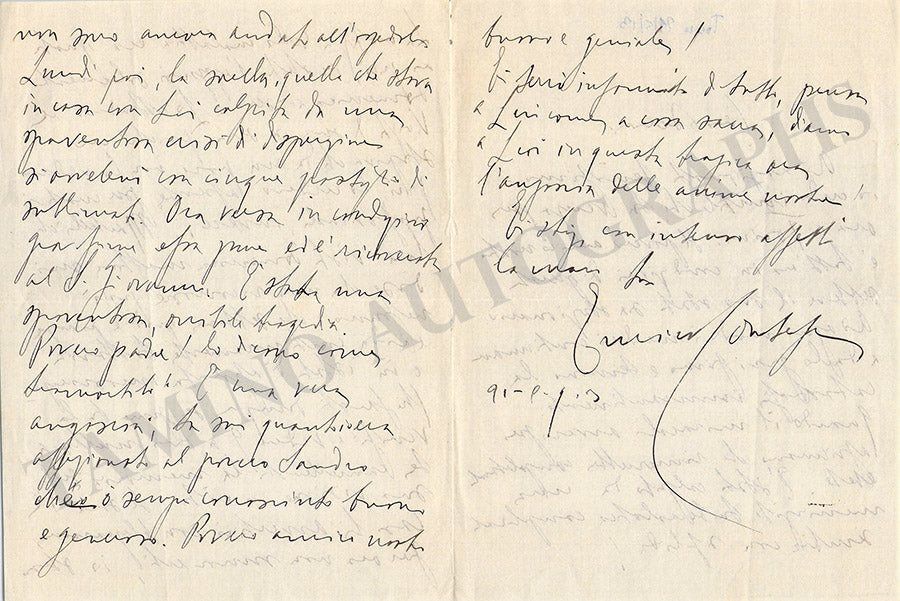 non sono ancora andato all'ospedale
Lunedì poi, la sorella, quella che stava
in casa con Lui colpita da una
spaventosa crisi di disperazione
si avvelenò con cinque pastiglie di
sublimato. Ora versa in condizioni
ed è ricoverata
al S. Giovanni. È stata una
spaventosa, orribile tragedia
Povero padre! Lo dicono
È una vera
angoscia, tu sai quant'era
affezionato al povero Sandro
che ò sempre conosciuto buono
e generoso. Povero amico nostro
buono e geniale!
Ti terrò informato di tutto, pensa
a Lui come a cosa sacra, diamo
a Lui in questa tragica ora
l'angoscia delle anime nostre!
Ti stringo con intenso affetto
la mano tuo
Enrico
TAMINO AUTOGRAPHS